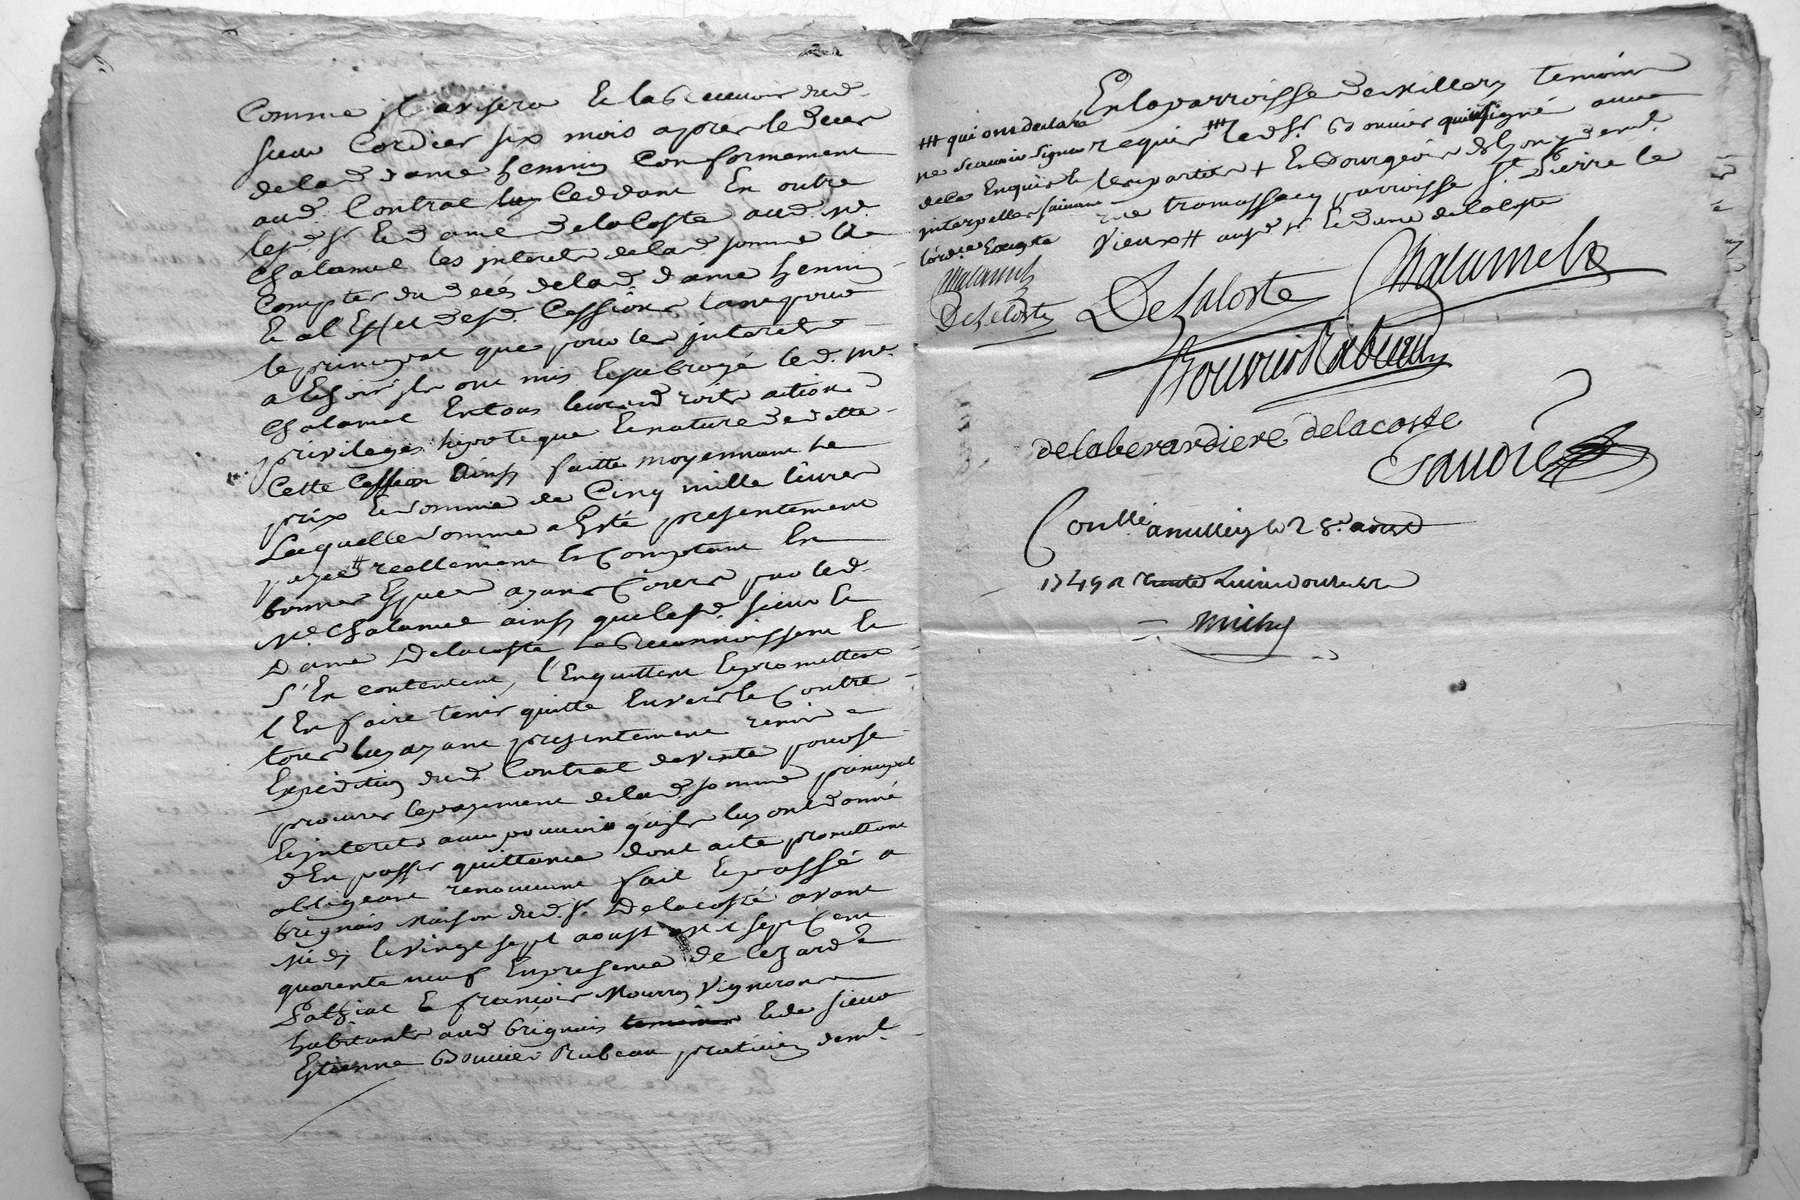 Comme jl avisera Et la Recevoir dud.
sieur Cordier six mois apres le deces
de lad. dame henin Conformement
aud. Contrat luy Ceddant En outre
lesd. sr. Et dame Delacoste aud. Me.
Chalamel les jnterets de lad. somme Ca
Compter du deces de lad. dame henin
Et a l'Effet desd. Cessions tant pour
le principal que pour les jnterets
ont mis Et subrogé led. Me.
Chalamel En tous leurs droits actions
privileges hipoteque Et nature de dette
Cette Cession Ainsy faitte moyennant Le
prix Et somme de Cinq mille livres
Laquelle somme a Esté presentement
payée reellement Et Comptant En
bonnes Especes ayant Cours par led.
Me. Chalamel ainsy que lesd. sieur Et
Dame Delacoste le Reconnoissent Et
S'En contentent, l'En quittent Et promettent
l'En faire tenir quitte Envers Et Contre
tous luy ayant presentement remis
Expedition dud. Contrat de vente pour se
procurer le payement de lad. somme principal
Et jnterets avec pouvoir qu'ils luy ont donné
d'En passer quittance dont acte promettant
obligeant renonceant fait Et passé a
brignais Maison dud. sr. Delacoste avant
Midy le vingt sept aoust mil sept Cent
quarante neuf En presence de Cezard
Et françois Mourry Vignerons
habitants aud. brignais temoins Et de sieur
Etienne Bouvier Rubeau praticien demt.
En la parroisse de Millery temoins
requis ### led. sr. Bouvier qui signé avec
les parties + Et Bourgeois de Lyon y demt.
rue tromassac parroisse St. Pierre le
Vieux # ausd. sr. Et dame delacoste
### qui ont declaré
ne scavoir signer
de ce Enquis Et
jnterpellés suivant
l'ord.ce
Chalamel
DeLaCoste
DeLaCoste Chalamel
Bouvier Rubeau
delaberardiere delacoste
Conllé a millery le 28e. aoust
1749 R